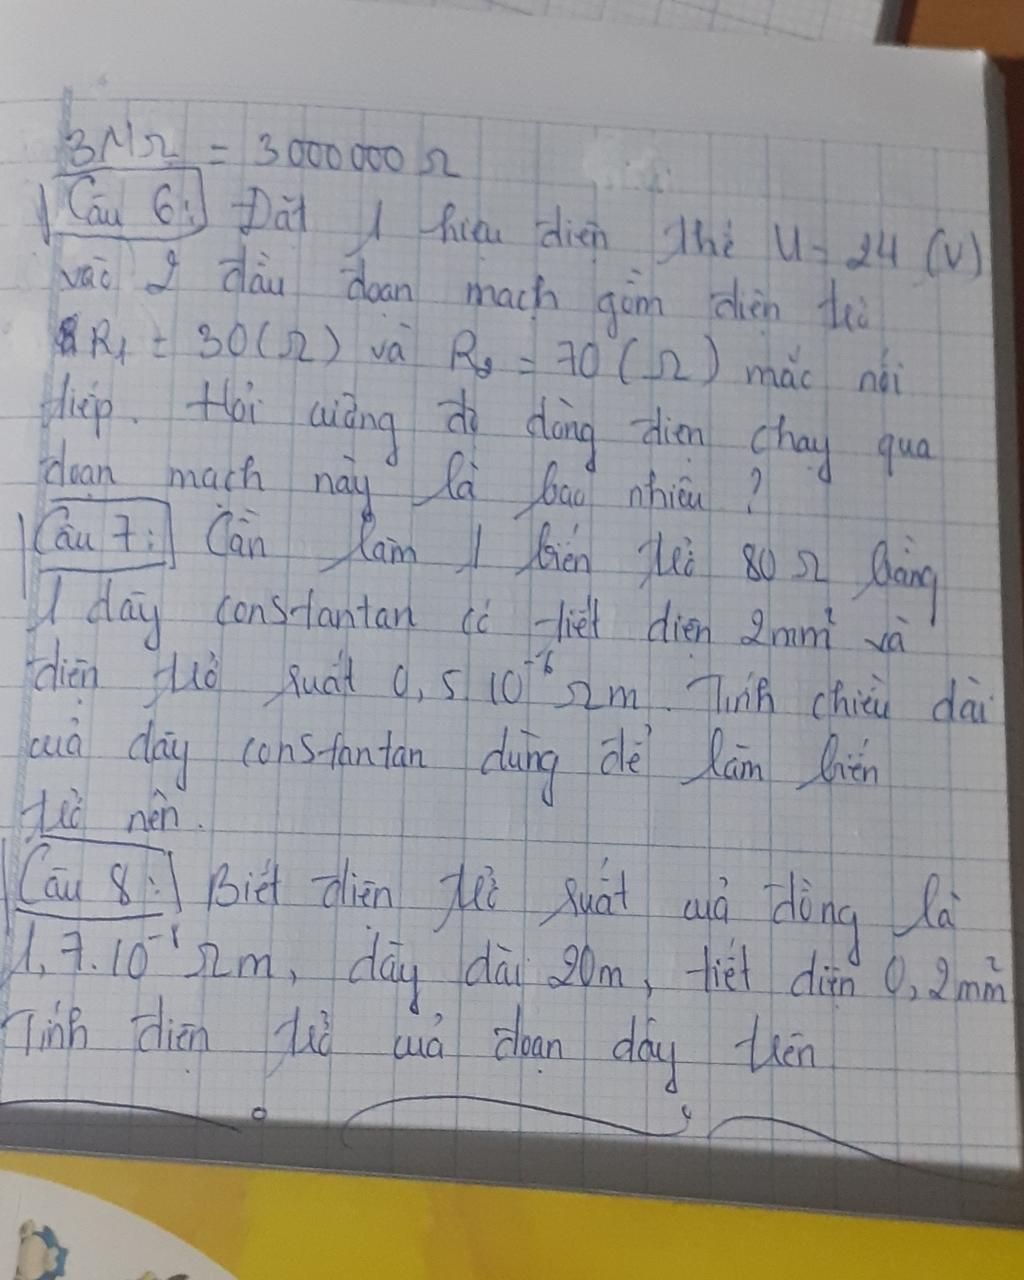 3MΩ = 3000000Ω
Câu 6: Đặt 1 hiệu điện thế U = 24 (V)
vào 2 đầu đoạn mạch gồm điện trở
R1 = 30(Ω) và R2 = 70(Ω) mắc nối
tiếp. Hỏi cường độ dòng điện chạy qua
đoạn mạch này là bao nhiêu?
Câu 7: Cần làm 1 biến trở 80Ω bằng
1 dây constantan có tiết diện 2mm² và
điện trở suất 0,5 10⁻⁶ Ωm. Tính chiều dài
của dây constantan dùng để làm biến
trở nên.
Câu 8: Biết điện trở suất của đồng là
1,7.10 Ωm, dây dài 20m, tiết diện 0,2mm²
Tính điện trở của đoạn dây trên